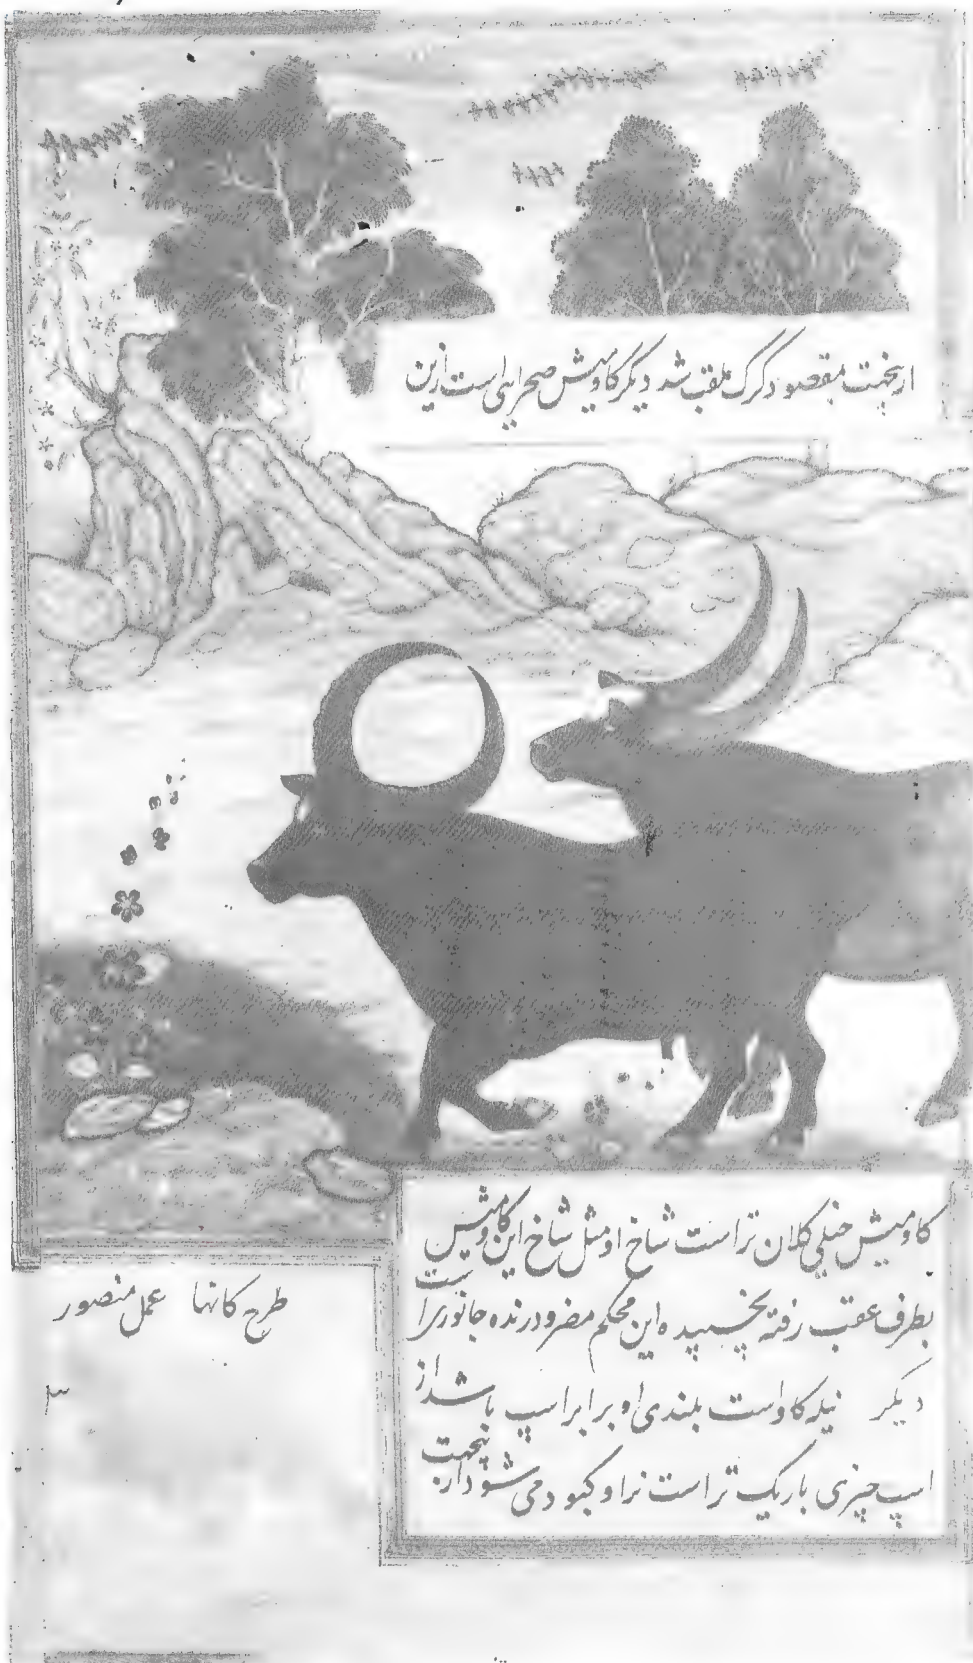 ازینجهت بمقصود کرک ملقب شد دیگر کاومیش صحرایی است ازین
کاومیش خیلی کلان تراست شاخ او مثل شاخ این کاومیش
بطرف عقب رفته نچسپیده این محکم مضر و درنده جانوری است
دیکر نیله کاواست بلندی او برابر اسپ باشد از
اسپ چیزی باریک تراست نر او کبود می شود ازینجهت
طرح کانها عمل منصور
۳